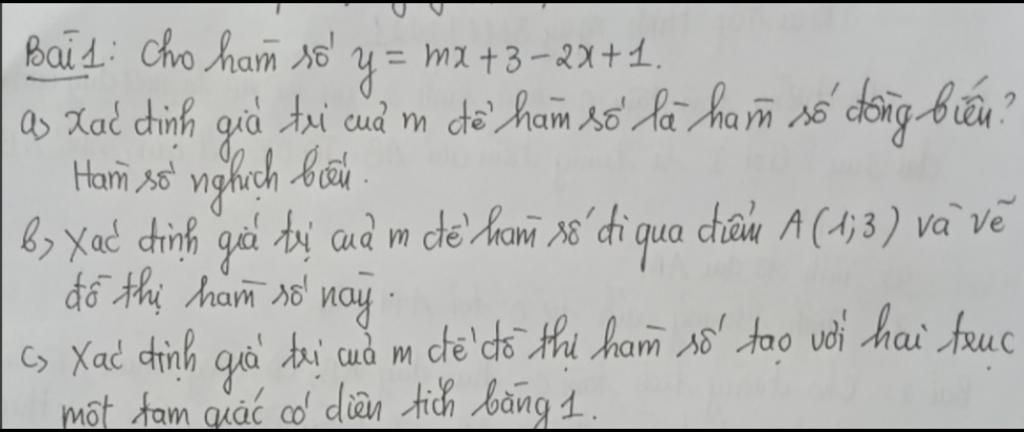 Bài 1: Cho hàm số y = mx + 3 - 2x + 1.
a) Xác định giá trị của m để hàm số là hàm số đồng biến?
Hàm số nghịch biến.
b) Xác định giá trị của m để hàm số đi qua điểm A(1;3) và vẽ
đồ thị hàm số này.
c) Xác định giá trị của m để đồ thị hàm số tạo với hai trục
một tam giác có diện tích bằng 1.